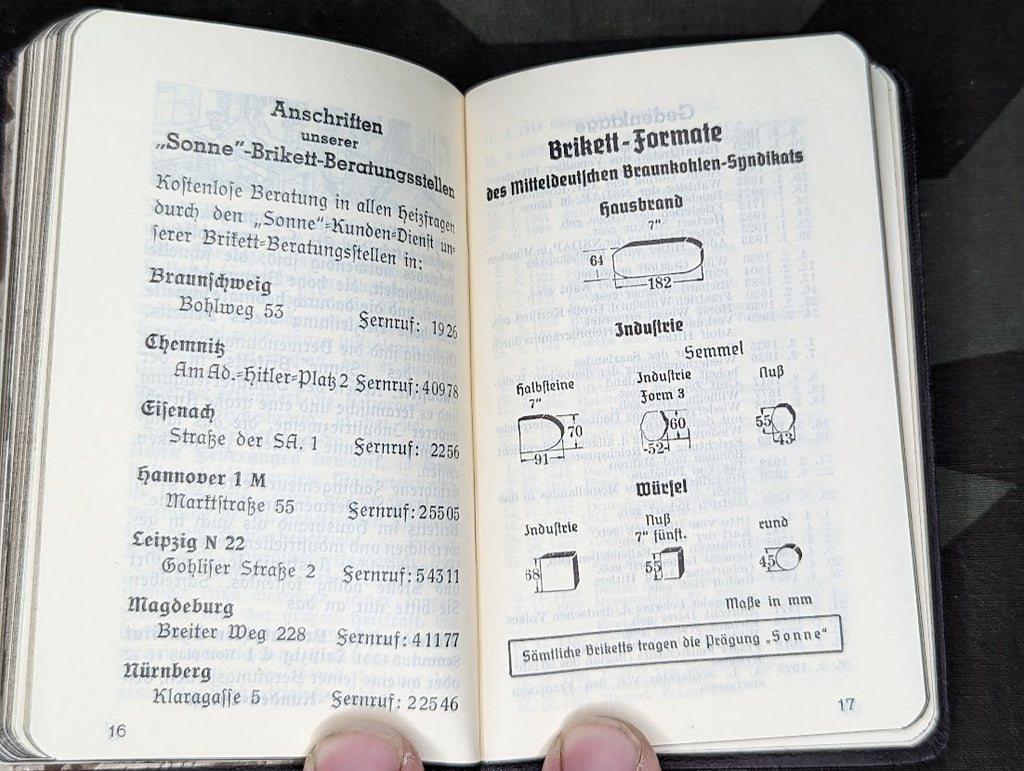 Anschriften
unserer
„Sonne“-Brikett-Beratungsstellen
Kostenlose Beratung in allen Heizfragen
durch den „Sonne“-Kunden-Dienst un-
serer Brikett-Beratungsstellen in:
Braunschweig
Bohlweg 53 Fernruf: 1926
Chemnitz
Am Ad.-Hitler-Platz 2 Fernruf: 40978
Eisenach
Straße der SA. 1 Fernruf: 2256
Hannover 1 M
Marktstraße 55 Fernruf: 25505
Leipzig N 22
Gohliser Straße 2 Fernruf: 54311
Magdeburg
Breiter Weg 228 Fernruf: 41177
Nürnberg
Klaragasse 5 Fernruf: 22546
16
Brikett-Formate
des Mitteldeutschen Braunkohlen-Syndikats
Hausbrand
7"
64
182
Industrie
Semmel
Halbsteine
7"
70
91
Industrie
Form 3
60
-52-
Nuß
55
43
Würfel
Industrie
68
Nuß
7" fünft.
55
rund
45
Maße in mm
Sämtliche Briketts tragen die Prägung „Sonne“
17